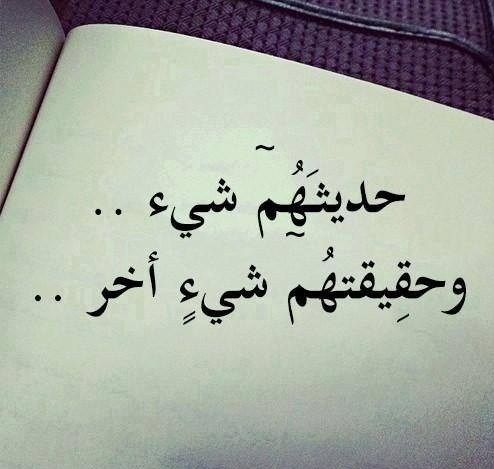 حديثـَهُِمٓ شيء ..
وحقِيقتهُمٓ شيءٍ أخر ..